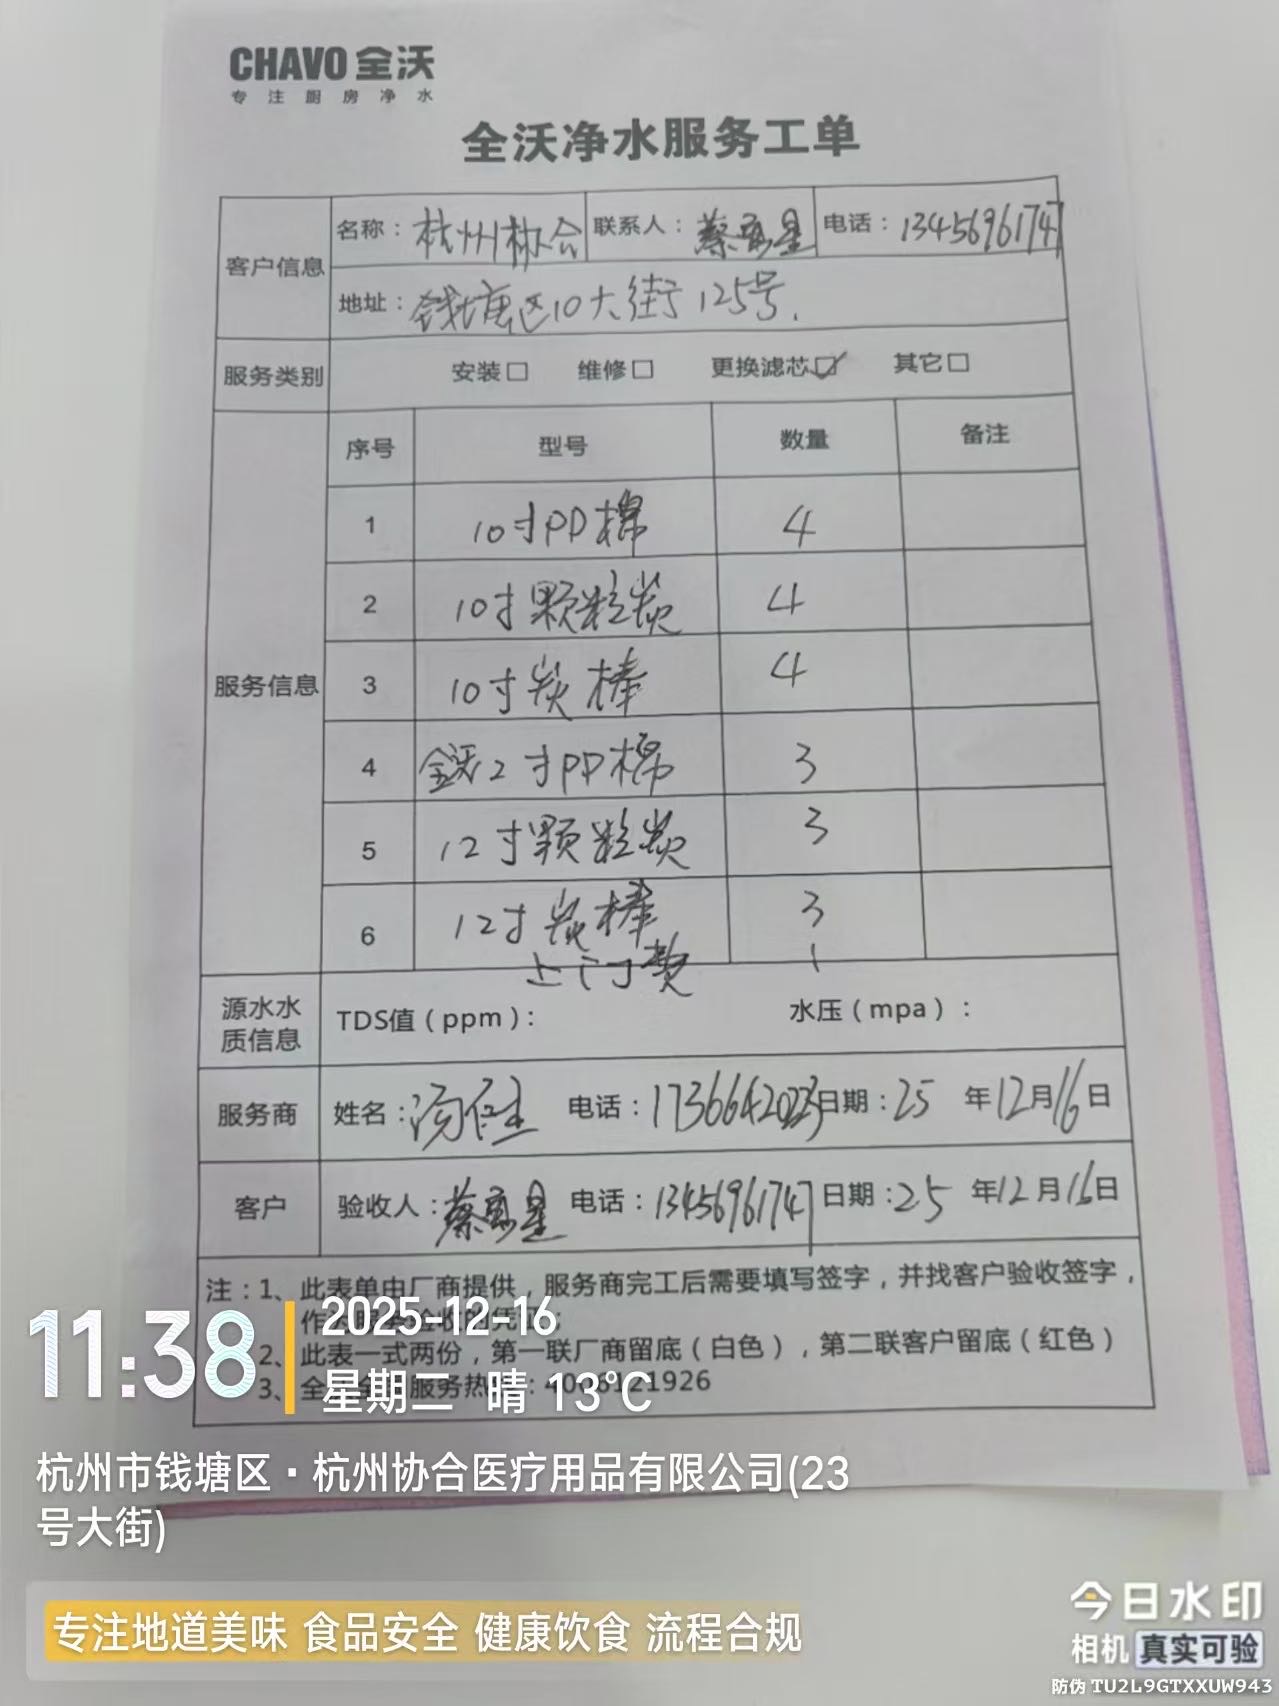 CHAVO 全沃
专注厨房净水
全沃净水服务工单
客户信息 名称：杭州协合 联系人：蔡 星 电话：13456961747
地址：钱塘区10大街125号.
服务类别 安装□ 维修□ 更换滤芯☑ 其它□
服务信息 序号 型号 数量 备注
1 10寸PP棉 4
2 10寸颗粒炭 4
3 10寸炭棒 4
4 2寸PP棉 3
5 12寸颗粒炭 3
6 12寸炭棒 3
上门费 1
源水水质信息 TDS值（ppm）： 水压（mpa）：
服务商 姓名：汤 电话：17366642023 日期：25 年12月16日
客户 验收人：蔡 星 电话：13456961747 日期：25 年12月16日
注：1、此表单由厂商提供，服务商完工后需要填写签字，并找客户验收签字，
作 凭
2、此表一式两份，第一联厂商留底（白色），第二联客户留底（红色）
3、全 服务热 ：4006121926
11:38
2025-12-16
星期二 晴 13°C
杭州市钱塘区·杭州协合医疗用品有限公司(23
号大街)
专注地道美味 食品安全 健康饮食 流程合规
今日水印
相机 真实可验
防伪 TU2L9GTXXUW943